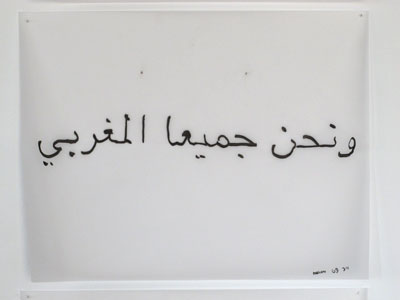 ونحن جميعا المغربي